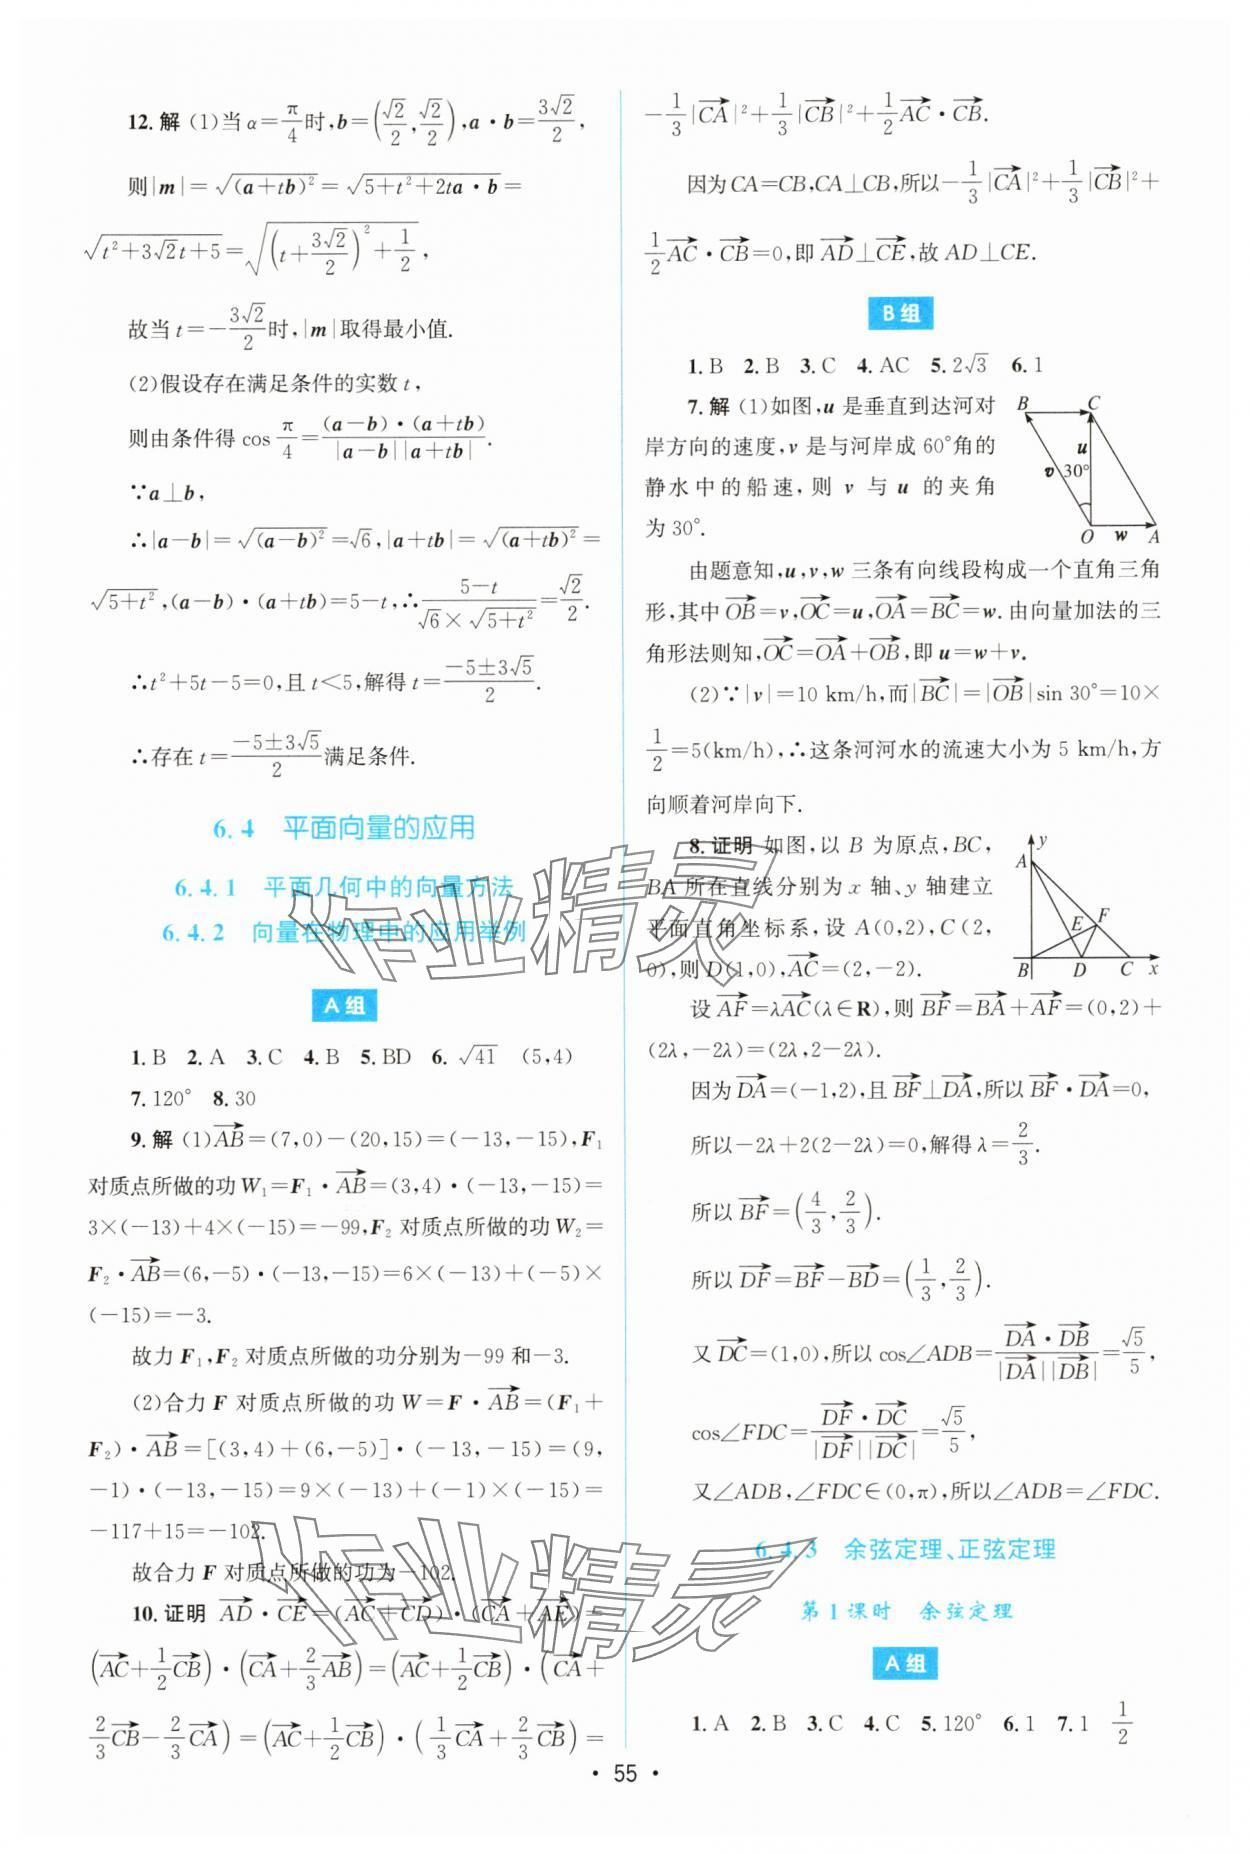 12.解 (1)当 α=π/4时,b=(√2/2,√2/2),a·b=3√2/2,
则|m|=√(a+tb)²=√5+t²+2ta·b=
√t²+3√2t+5=√(t+3√2/2)²+1/2,
故当 t=-3√2/2时,|m|取得最小值.
(2)假设存在满足条件的实数 t,
则由条件得 cos π/4=(a-b)·(a+tb)/|a-b||a+tb|.
∵a⊥b,
∴|a-b|=√(a-b)²=√6,|a+tb|=√(a+tb)²=
√5+t²,(a-b)·(a+tb)=5-t,∴5-t/√6×√5+t²=√2/2.
∴t²+5t-5=0,且 t<5,解得 t=-5±3√5/2.
∴存在 t=-5±3√5/2满足条件.
6.4 平面向量的应用
6.4.1 平面几何中的向量方法
6.4.2 向量在物理中的应用举例
A 组
1.B 2.A 3.C 4.B 5.BD 6.√41 (5,4)
7.120° 8.30
9.解 (1)AB→=(7,0)-(20,15)=(-13,-15),F₁
对质点所做的功 W₁=F₁·AB→=(3,4)·(-13,-15)=
3×(-13)+4×(-15)=-99,F₂ 对质点所做的功 W₂=
F₂·AB→=(6,-5)·(-13,-15)=6×(-13)+(-5)×
(-15)=-3.
故力 F₁,F₂ 对质点所做的功分别为-99 和-3.
(2)合力 F 对质点所做的功 W=F·AB→=(F₁+
F₂)·AB→=[(3,4)+(6,-5)]·(-13,-15)=(9,
-1)·(-13,-15)=9×(-13)+(-1)×(-15)=
-117+15=-102.
故合力 F 对质点所做的功为-102.
10.证明 AD→·CE→=(AC→+CD→)·(CA→+AE→)=
(AC→+1/2CB→)·(CA→+2/3AB→)=(AC→+1/2CB→)·(CA→+
2/3CB→-2/3CA→)=(AC→+1/2CB→)·(1/3CA→+2/3CB→)=
-1/3|CA→|²+1/3|CB→|²+1/2AC→·CB→.
因为 CA=CB,CA⊥CB,所以-1/3|CA→|²+1/3|CB→|²+
1/2AC→·CB→=0,即 AD→⊥CE→,故 AD⊥CE.
B 组
1.B 2.B 3.C 4.AC 5.2√3 6.1
7.解 (1)如图,u 是垂直到达河对
岸方向的速度,v 是与河岸成 60°角的
静水中的船速,则 v 与 u 的夹角
为 30°.
B C
u
v 30°
O w A
由题意知,u,v,w 三条有向线段构成一个直角三角
形,其中OB→=v,OC→=u,OA→=BC→=w.由向量加法的三
角形法则知,OC→=OA→+OB→,即 u=w+v.
(2)∵|v|=10 km/h,而|BC→|=|OB→|sin 30°=10×
1/2=5(km/h),∴这条河河水的流速大小为 5 km/h,方
向顺着河岸向下.
8.证明 如图,以 B 为原点,BC,
BA 所在直线分别为 x 轴、y 轴建立
平面直角坐标系,设 A(0,2),C(2,
0),则 D(1,0),AC→=(2,-2).
y
A
E F
B D C x
设 AF→=λAC→(λ∈R),则 BF→=BA→+AF→=(0,2)+
(2λ,-2λ)=(2λ,2-2λ).
因为DA→=(-1,2),且BF→⊥DA→,所以BF→·DA→=0,
所以-2λ+2(2-2λ)=0,解得 λ=2/3.
所以BF→=(4/3,2/3).
所以DF→=BF→-BD→=(1/3,2/3).
又DC→=(1,0),所以 cos∠ADB=DA→·DB→/|DA→||DB→|=√5/5,
cos∠FDC=DF→·DC→/|DF→||DC→|=√5/5,
又∠ADB,∠FDC∈(0,π),所以∠ADB=∠FDC.
6.4.3 余弦定理、正弦定理
第 1 课时 余弦定理
A 组
1.A 2.B 3.C 4.C 5.120° 6.1 7.1 1/2
· 55 ·
作业精灵
作业精灵